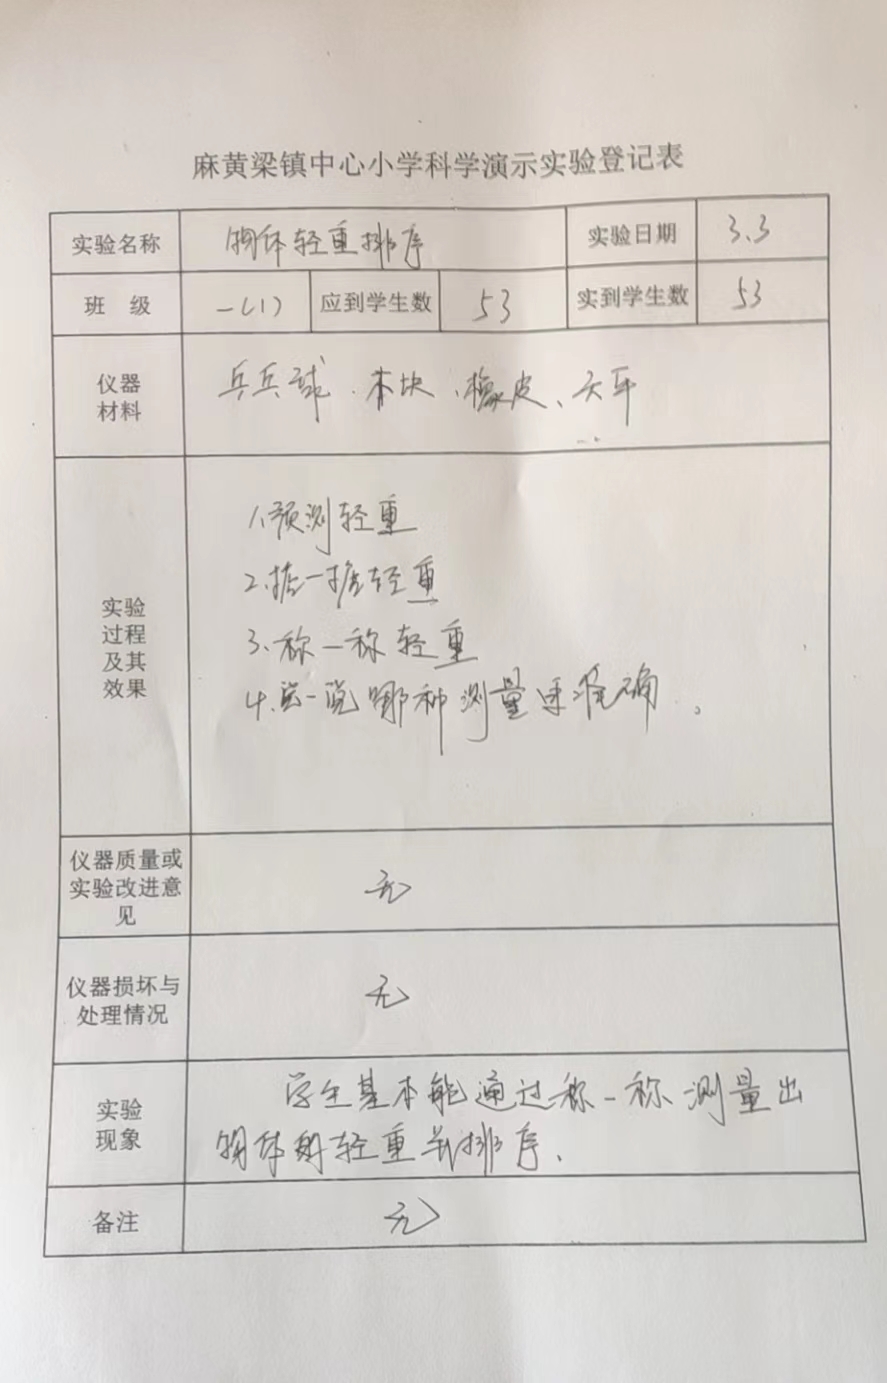 麻黄梁镇中心小学科学演示实验登记表
实验名称 物体轻重排序 实验日期 3.3
班 级 一(1) 应到学生数 53 实到学生数 53
仪器
材料
乒乓球、木块、橡皮、天平
实验
过程
及其
效果
1.预测轻重
2.掂一掂轻重
3.称一称轻重
4.说一说哪种测量更准确.
仪器质量或
实验改进意
见
无
仪器损坏与
处理情况
无
实验
现象
学生基本能通过称一称测量出
物体的轻重并排序.
备注 无